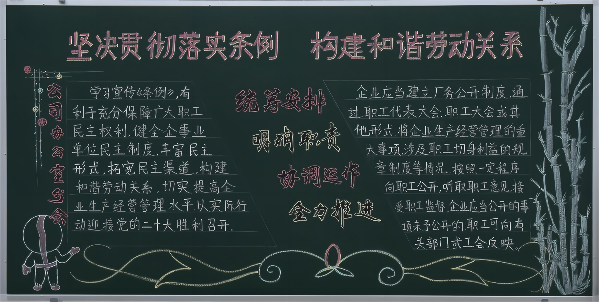 坚决贯彻落实条例 构建和谐劳动关系
学习宣传《条例》,有
利于充分保障广大职工
民主权利,健全企事业
单位民主制度,丰富民主
形式,拓宽民主渠道,构建
和谐劳动关系,切实提高企
业生产经营管理水平以实际行
动迎接党的二十大胜利召开.
统筹安排
明确职责
协调运作
全力推进
企业应当建立厂务公开制度,通
过职工代表大会,职工大会或其
他形式,将企业生产经营管理的重
大事项,涉及职工切身利益的规
章制度等情况,按照一定程序
向职工公开,听取职工意见,接
受职工监督.企业应当公开的事
项未予公开的职工可向有
关部门或工会反映.